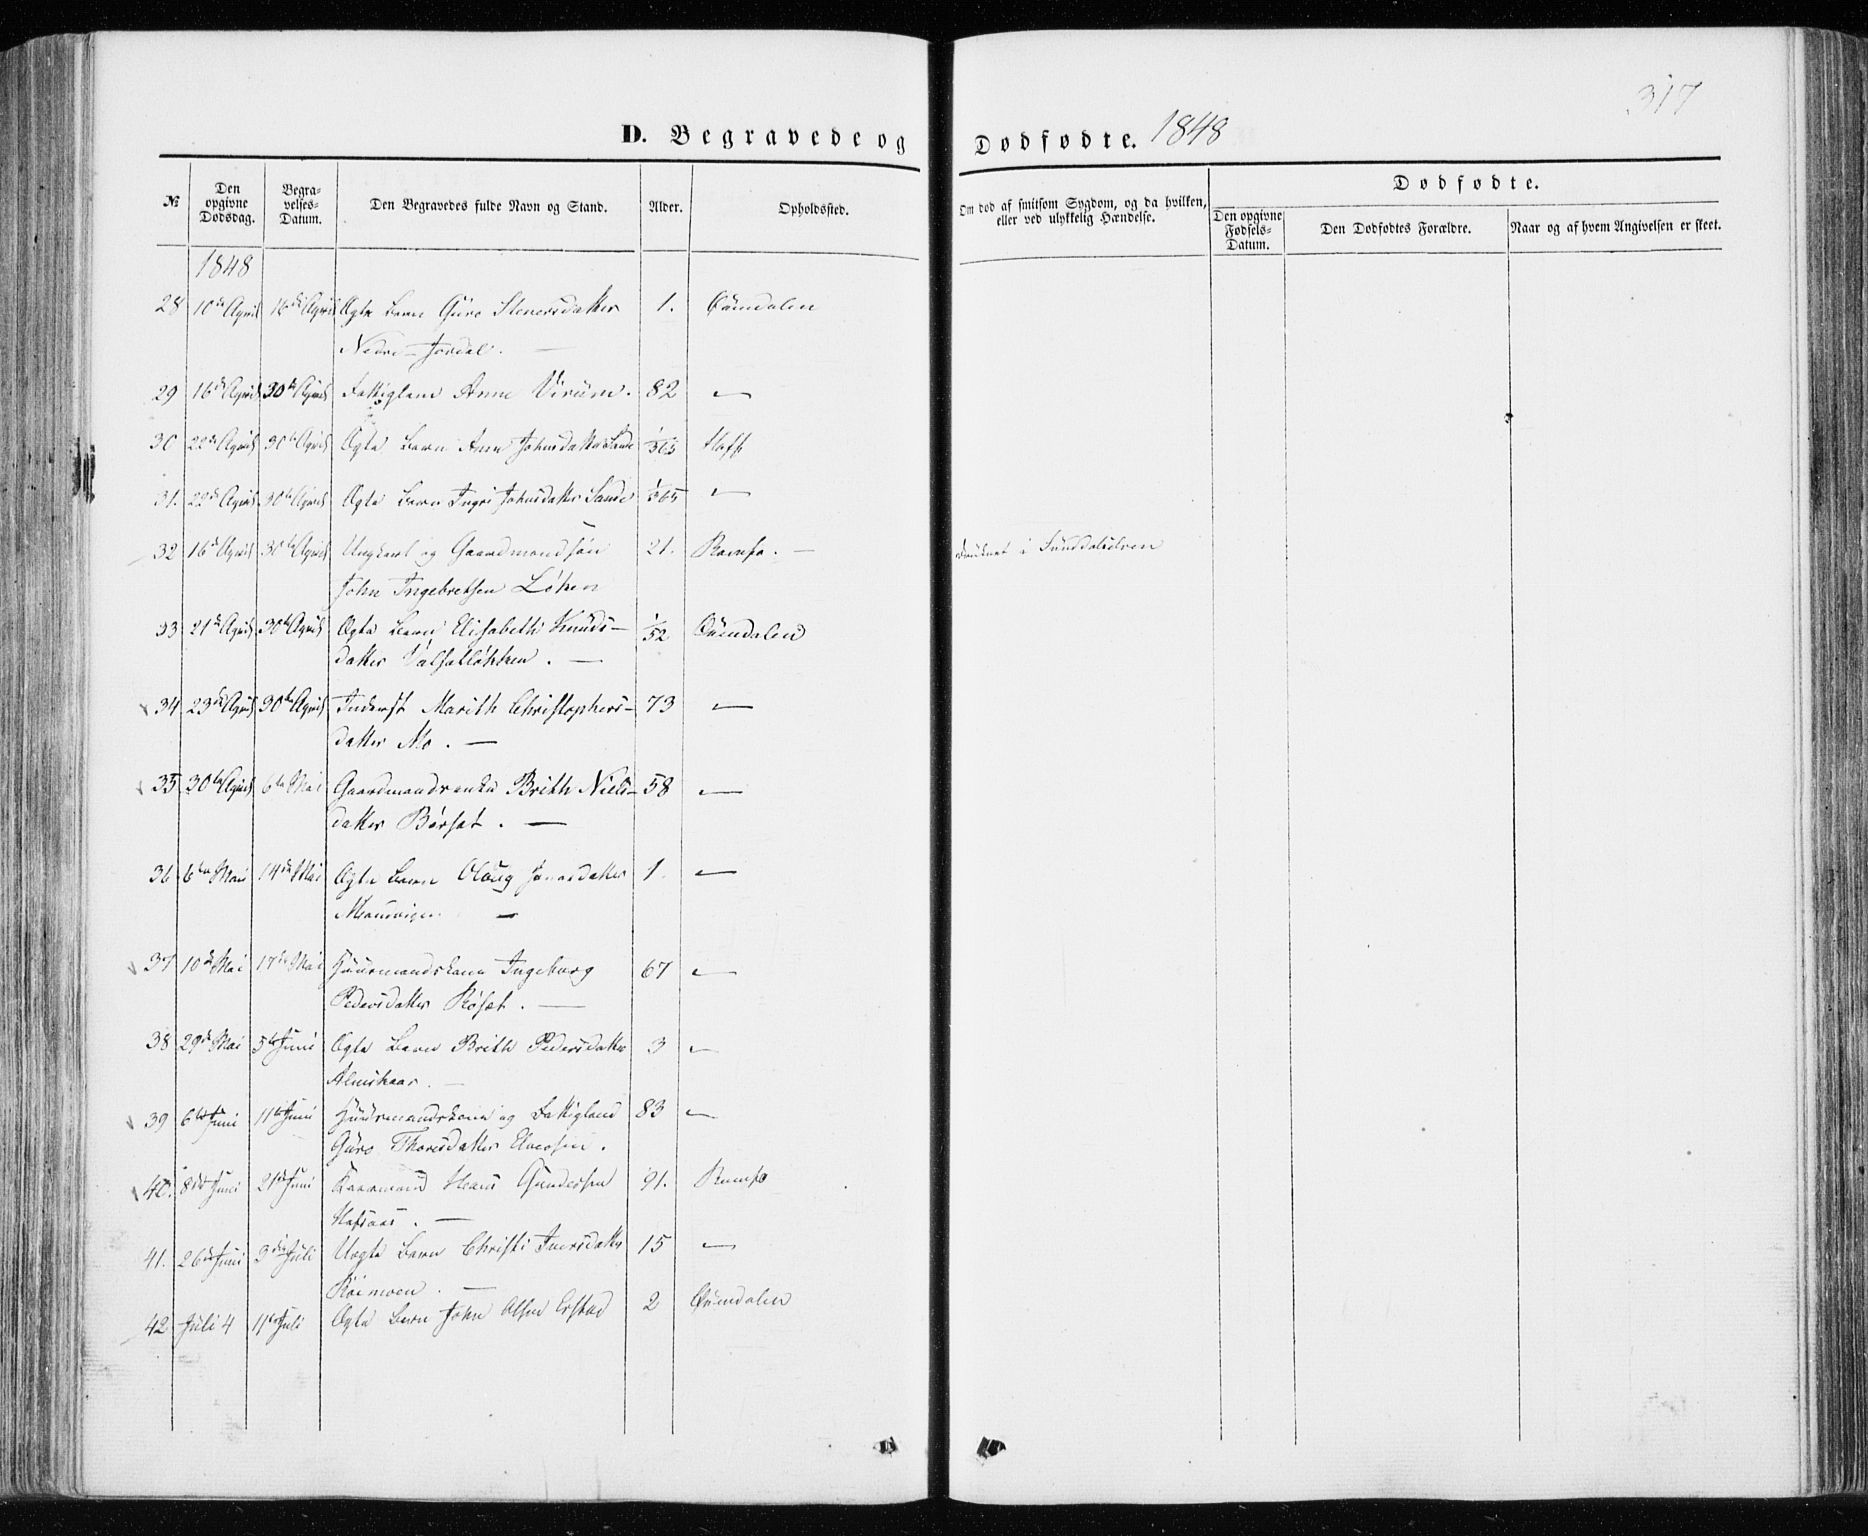 317
D. Begravede og Dødfødte. 1848
№
Den opgivne Dødsdag.
Begravelses-Datum.
Den Begravedes fulde Navn og Stand.
Alder.
Opholdssted.
Om død af smitsom Sygdom, og da hvilken, eller ved ulykkelig Hændelse.
Dødfødte.
Den opgivne Fødsels-Datum.
Den Dødfødtes Forældre.
Naar og af hvem Angivelsen er skeet.
1848
28 10de April 16de April Ægte Barn Guro Sieversdatter 1. Øxendalen
Nedre-Jordal. —
29 16de April 30te April Fattiglem Anne Virum. 82 —
30 22de April 30te April Ægte Barn Ane Johnsdatter Sande 1/365 Hofs
31. 22de April 30te April Ægte Barn Ingri Johnsdatter Sande 1/365 —
32 16de April 30te April Ungkarl og Gaardmandssøn 21. Romfo. — druknet i Sunddalselven
John Ingebretsen Løken
33 21de April 30te April Ægte Barn Elisabeth Knuds- 1/52 Øxendalen
datter . —
34 23de April 30te April Inderst Marith Christophers- 73 —
datter Mo. —
35 30te April 6te Mai Gaardmandsenke Brith Niels- 58 —
datter Børset. —
36 6te Mai 14de Mai Ægte Barn Olaug datter 1. —
—
37 10de Mai 17de Mai Huusmandskone Ingeborg 67 —
Pedersdatter Røset. —
38 29de Mai 5te Juni Ægte Barn Brith Pedersdatter 3 —
Almskaar. —
39 6te Juni 11te Juni Huusmandskone og Fattiglem 83 —
Guro Thoresdatter .
40. 8de Juni 21de Juni Kaarmand Hans Gundersen 91. Romfo
Hafsaas. —
41. 26de Juni 3die Juli Uægte Barn Christi Iversdatter 15 —
Røimoen. —
42 Juli 4 11te Juli Ægte Barn John Olsen Erstad 2 Øxendalen